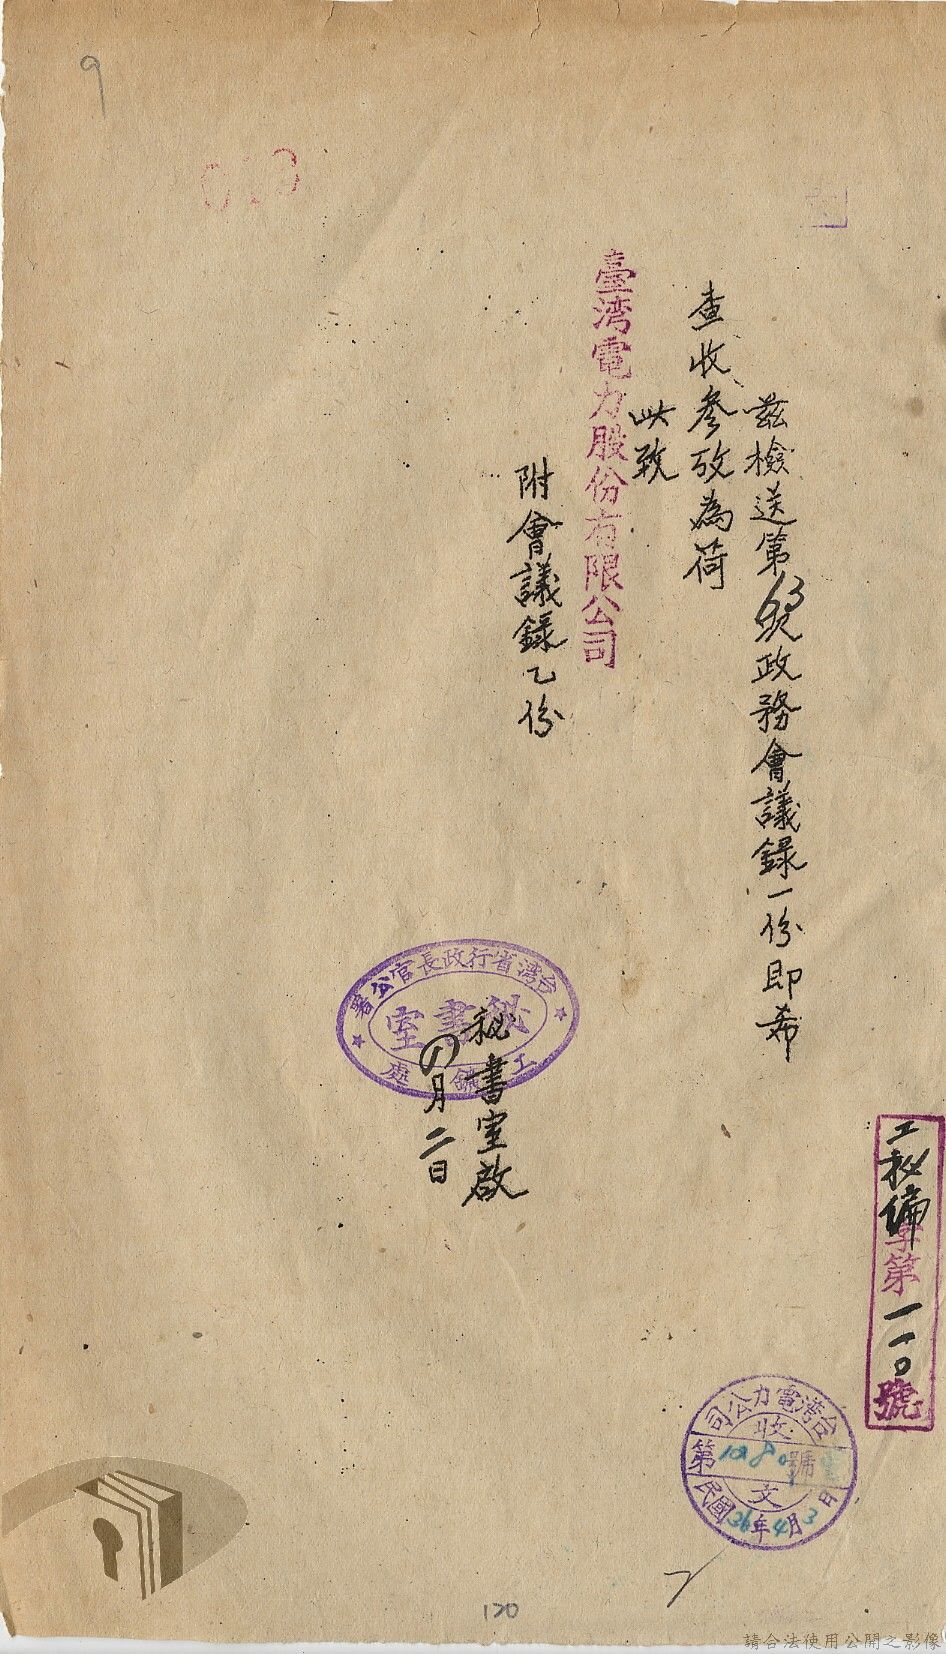 工秘編字第一一〇號
茲檢送第63次政務會議錄一份即希
查收參攷為荷
此致
臺湾電力股份有限公司
附會議錄乙份
秘書室啟
四月二日
台湾省行政長官公署
工鑛處
秘書室
台湾電力公司
收
第 號
文
民國36年4月3日
9
120
請合法使用公開之影像